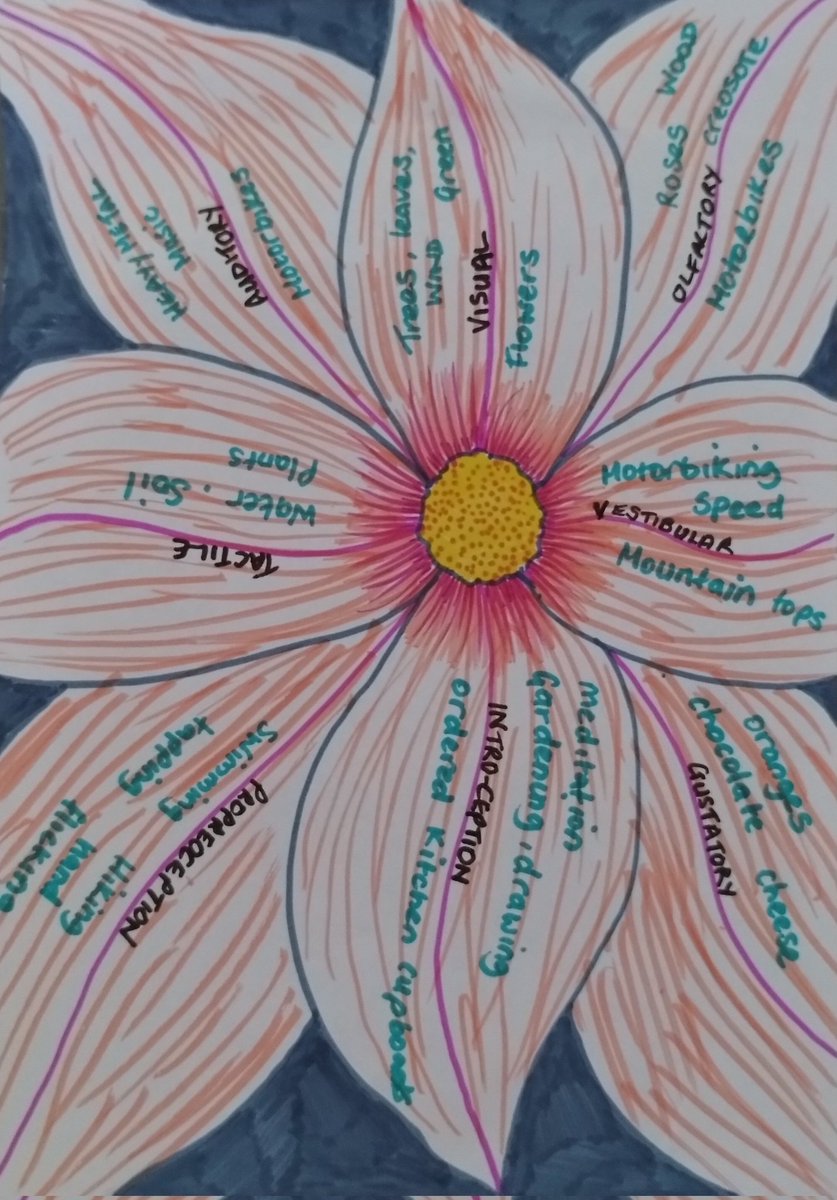 HEAVY METAL
MUSIC
AUDITORY
Motorbikes
Trees, leaves,
WIND Green
VISUAL
Flowers
Roses WOOD
creosote
OLFACTORY
Motorbikes
Motorbiking
Speed
VESTIBULAR
Mountain tops
oranges
chocolate cheese
GUSTATORY
meditation
Gardening, drawing
INTRO-CEPTION
ordered Kitchen cupboards
PROPREOCEPTION
Swimming
tapping
Hiking
hand
flicking
TACTILE
Water, Soil
Plants